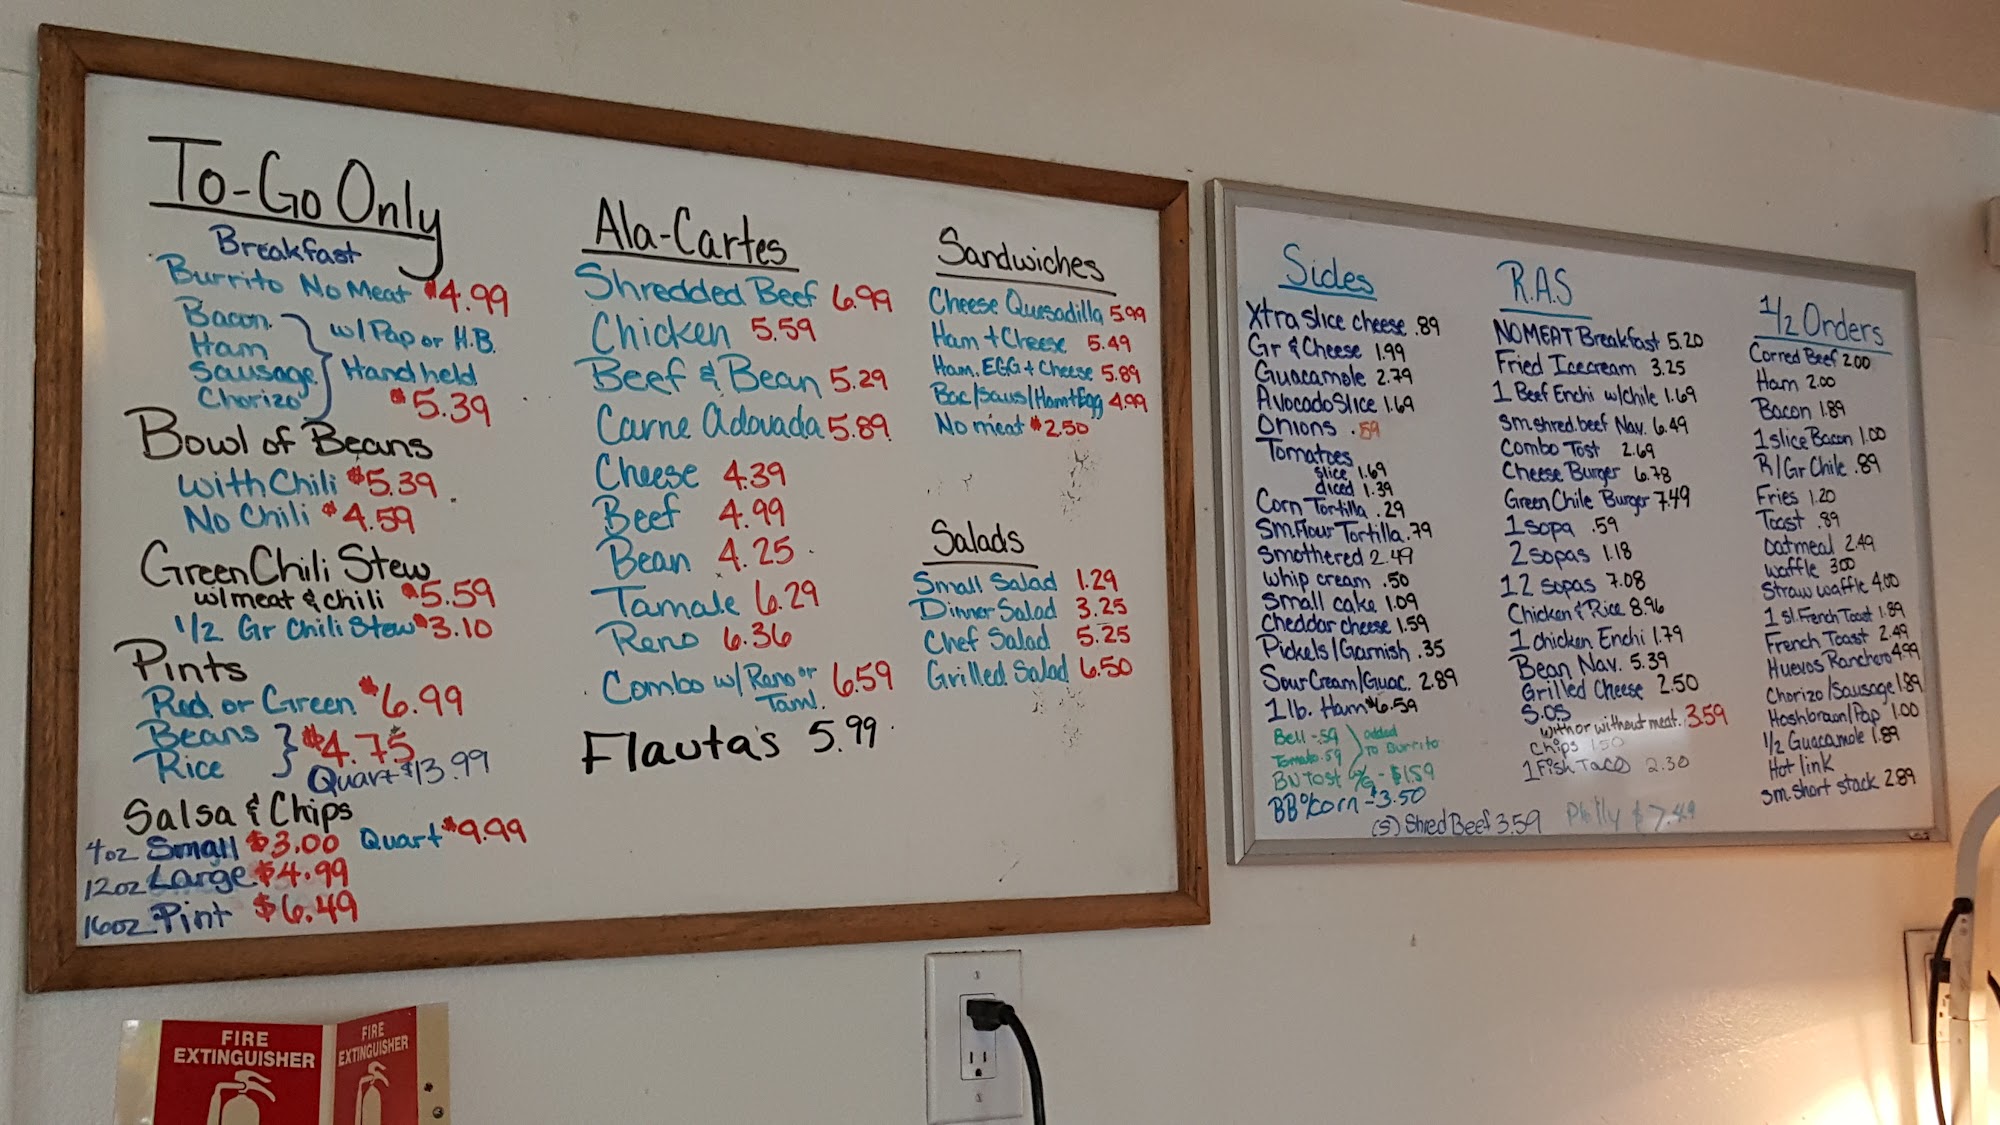 To-Go Only
Breakfast
Burrito No Meat $4.99
Bacon
Ham
Sausage
Chorizo
w/Pap or H.B.
Hand held
$5.39
Bowl of Beans
with Chili $5.39
No Chili $4.59
Green Chili Stew
w/meat & chili $5.59
1/2 Gr Chili Stew $3.10
Pints
Red or Green $6.99
Beans
Rice
$4.75
Quart $13.99
Salsa & Chips
4oz Small $3.00 Quart $9.99
12oz Large $4.99
16oz Pint $6.49
Ala-Cartes
Shredded Beef 6.99
Chicken 5.59
Beef & Bean 5.29
Carne Adovada 5.89
Cheese 4.39
Beef 4.99
Bean 4.25
Tamale 6.29
Reno 6.36
Combo w/Reno or
Tam. 6.59
Flauta's 5.99
Sandwiches
Cheese Quesadilla 5.99
Ham + Cheese 5.49
Ham. EGG + Cheese 5.89
Bac/Saus/Ham+Egg 4.99
No meat $2.50
Salads
Small Salad 1.29
Dinner Salad 3.25
Chef Salad 5.25
Grilled Salad 6.50
Sides
Xtra slice cheese .89
Gr & Cheese 1.99
Guacamole 2.79
Avocado Slice 1.69
Onions .59
Tomatoes
slice 1.69
diced 1.39
Corn Tortilla .29
Sm. Flour Tortilla .79
Smothered 2.49
whip cream .50
Small cake 1.09
Cheddar cheese 1.59
Pickels/Garnish .35
Sour Cream/Guac. 2.89
1 lb. Ham $6.59
Bell - .59
Tomato .59
added
To Burrito
BN Tost - $1.59
BB % corn - $3.50
(S) Shred Beef 3.59
Philly $7.49
R.A.S
NO MEAT Breakfast 5.20
Fried Icecream 3.25
1 Beef Enchi w/chile 1.69
sm.shred.beef Nav. 6.49
Combo Tost 2.69
Cheese Burger 6.78
Green Chile Burger 7.49
1 sopa .59
2 sopas 1.18
12 sopas 7.08
Chicken & Rice 8.96
1 chicken Enchi 1.79
Bean Nav. 5.39
Grilled Cheese 2.50
S.O.S
with or without meat. 3.59
Chips 1.50
1 Fish Taco 2.30
1/2 Orders
Corred Beef 2.00
Ham 2.00
Bacon 1.89
1 slice Bacon 1.00
R/Gr Chile .89
Fries 1.20
Toast .89
Oatmeal 2.49
waffle 3.00
Straw waffle 4.00
1 sl. French Toast 1.89
French Toast 2.49
Huevos Ranchero 4.99
Chorizo/Sausage 1.89
Hashbrown/Pap 1.00
1/2 Guacamole 1.89
Hot link
sm. short stack 2.89
FIRE
EXTINGUISHER
FIRE
EXTINGUISHER